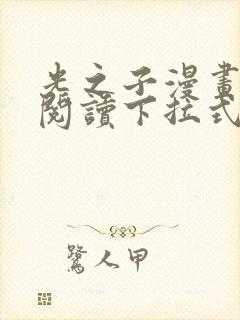 光之子漫畫
閱讀下拉式
鷺人甲